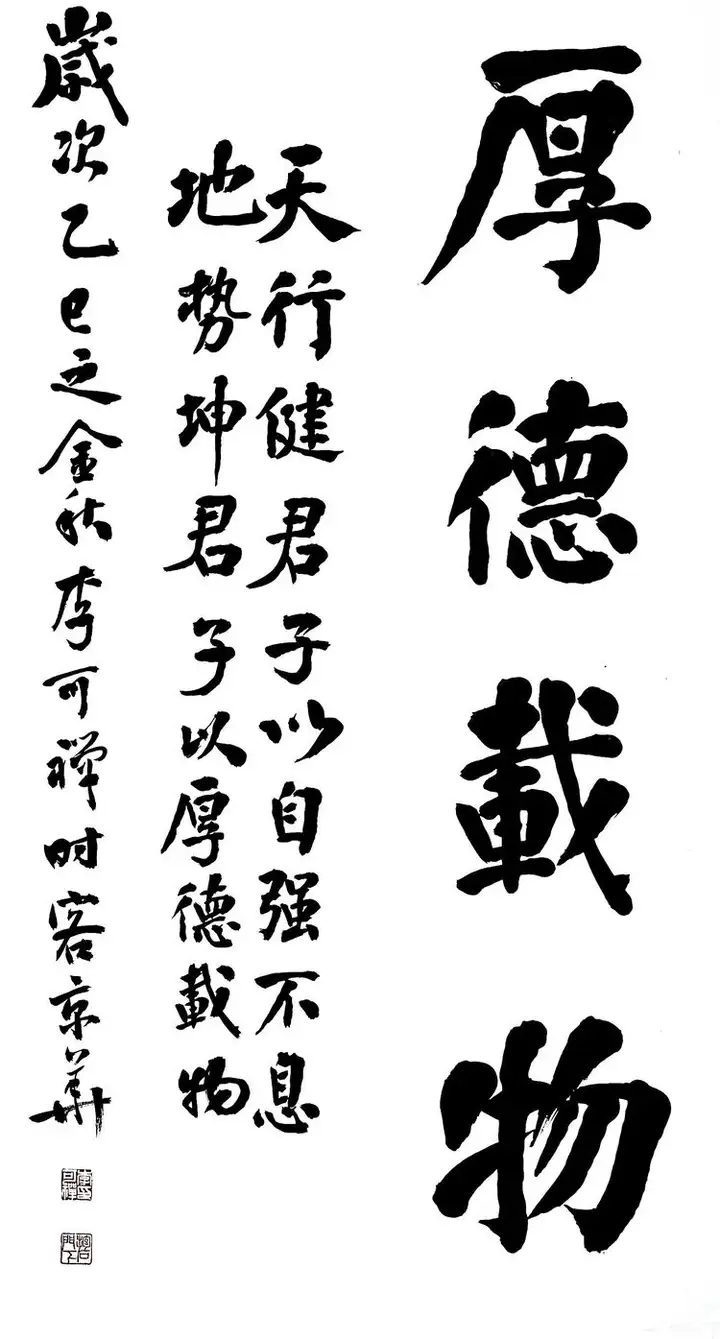 厚德載物
天行健君子以自强不息
地势坤君子以厚德載物
歲次乙巳之金秋李可禅时客京華